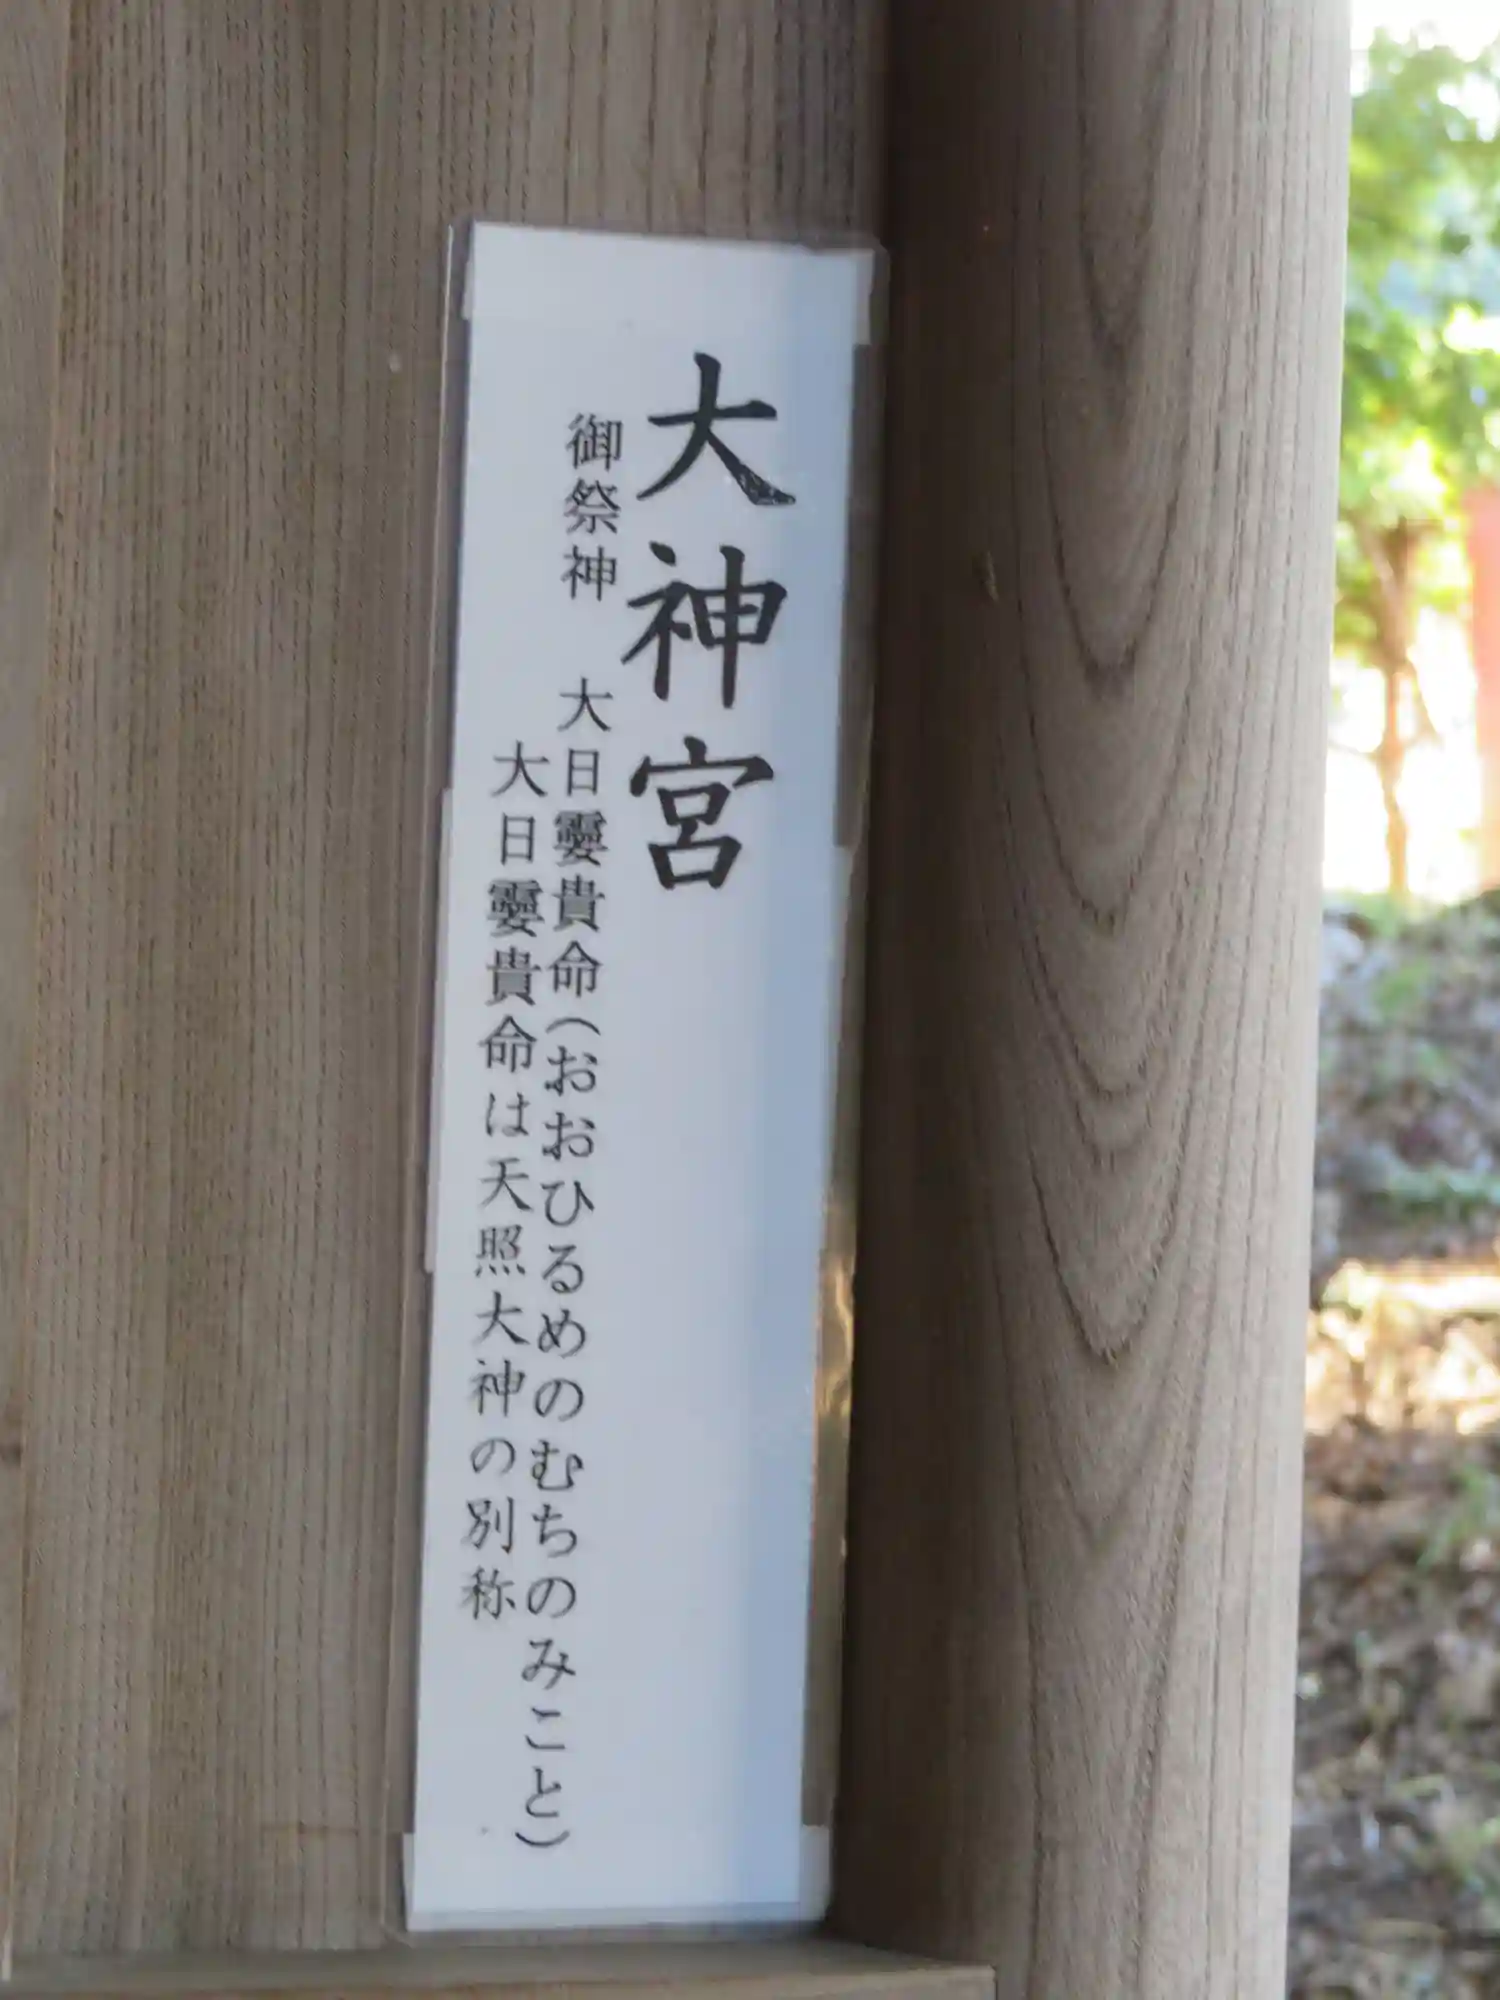 大神宮
御祭神　大日孁貴命（おおひるめのむちのみこと）
大日孁貴命は天照大神の別称